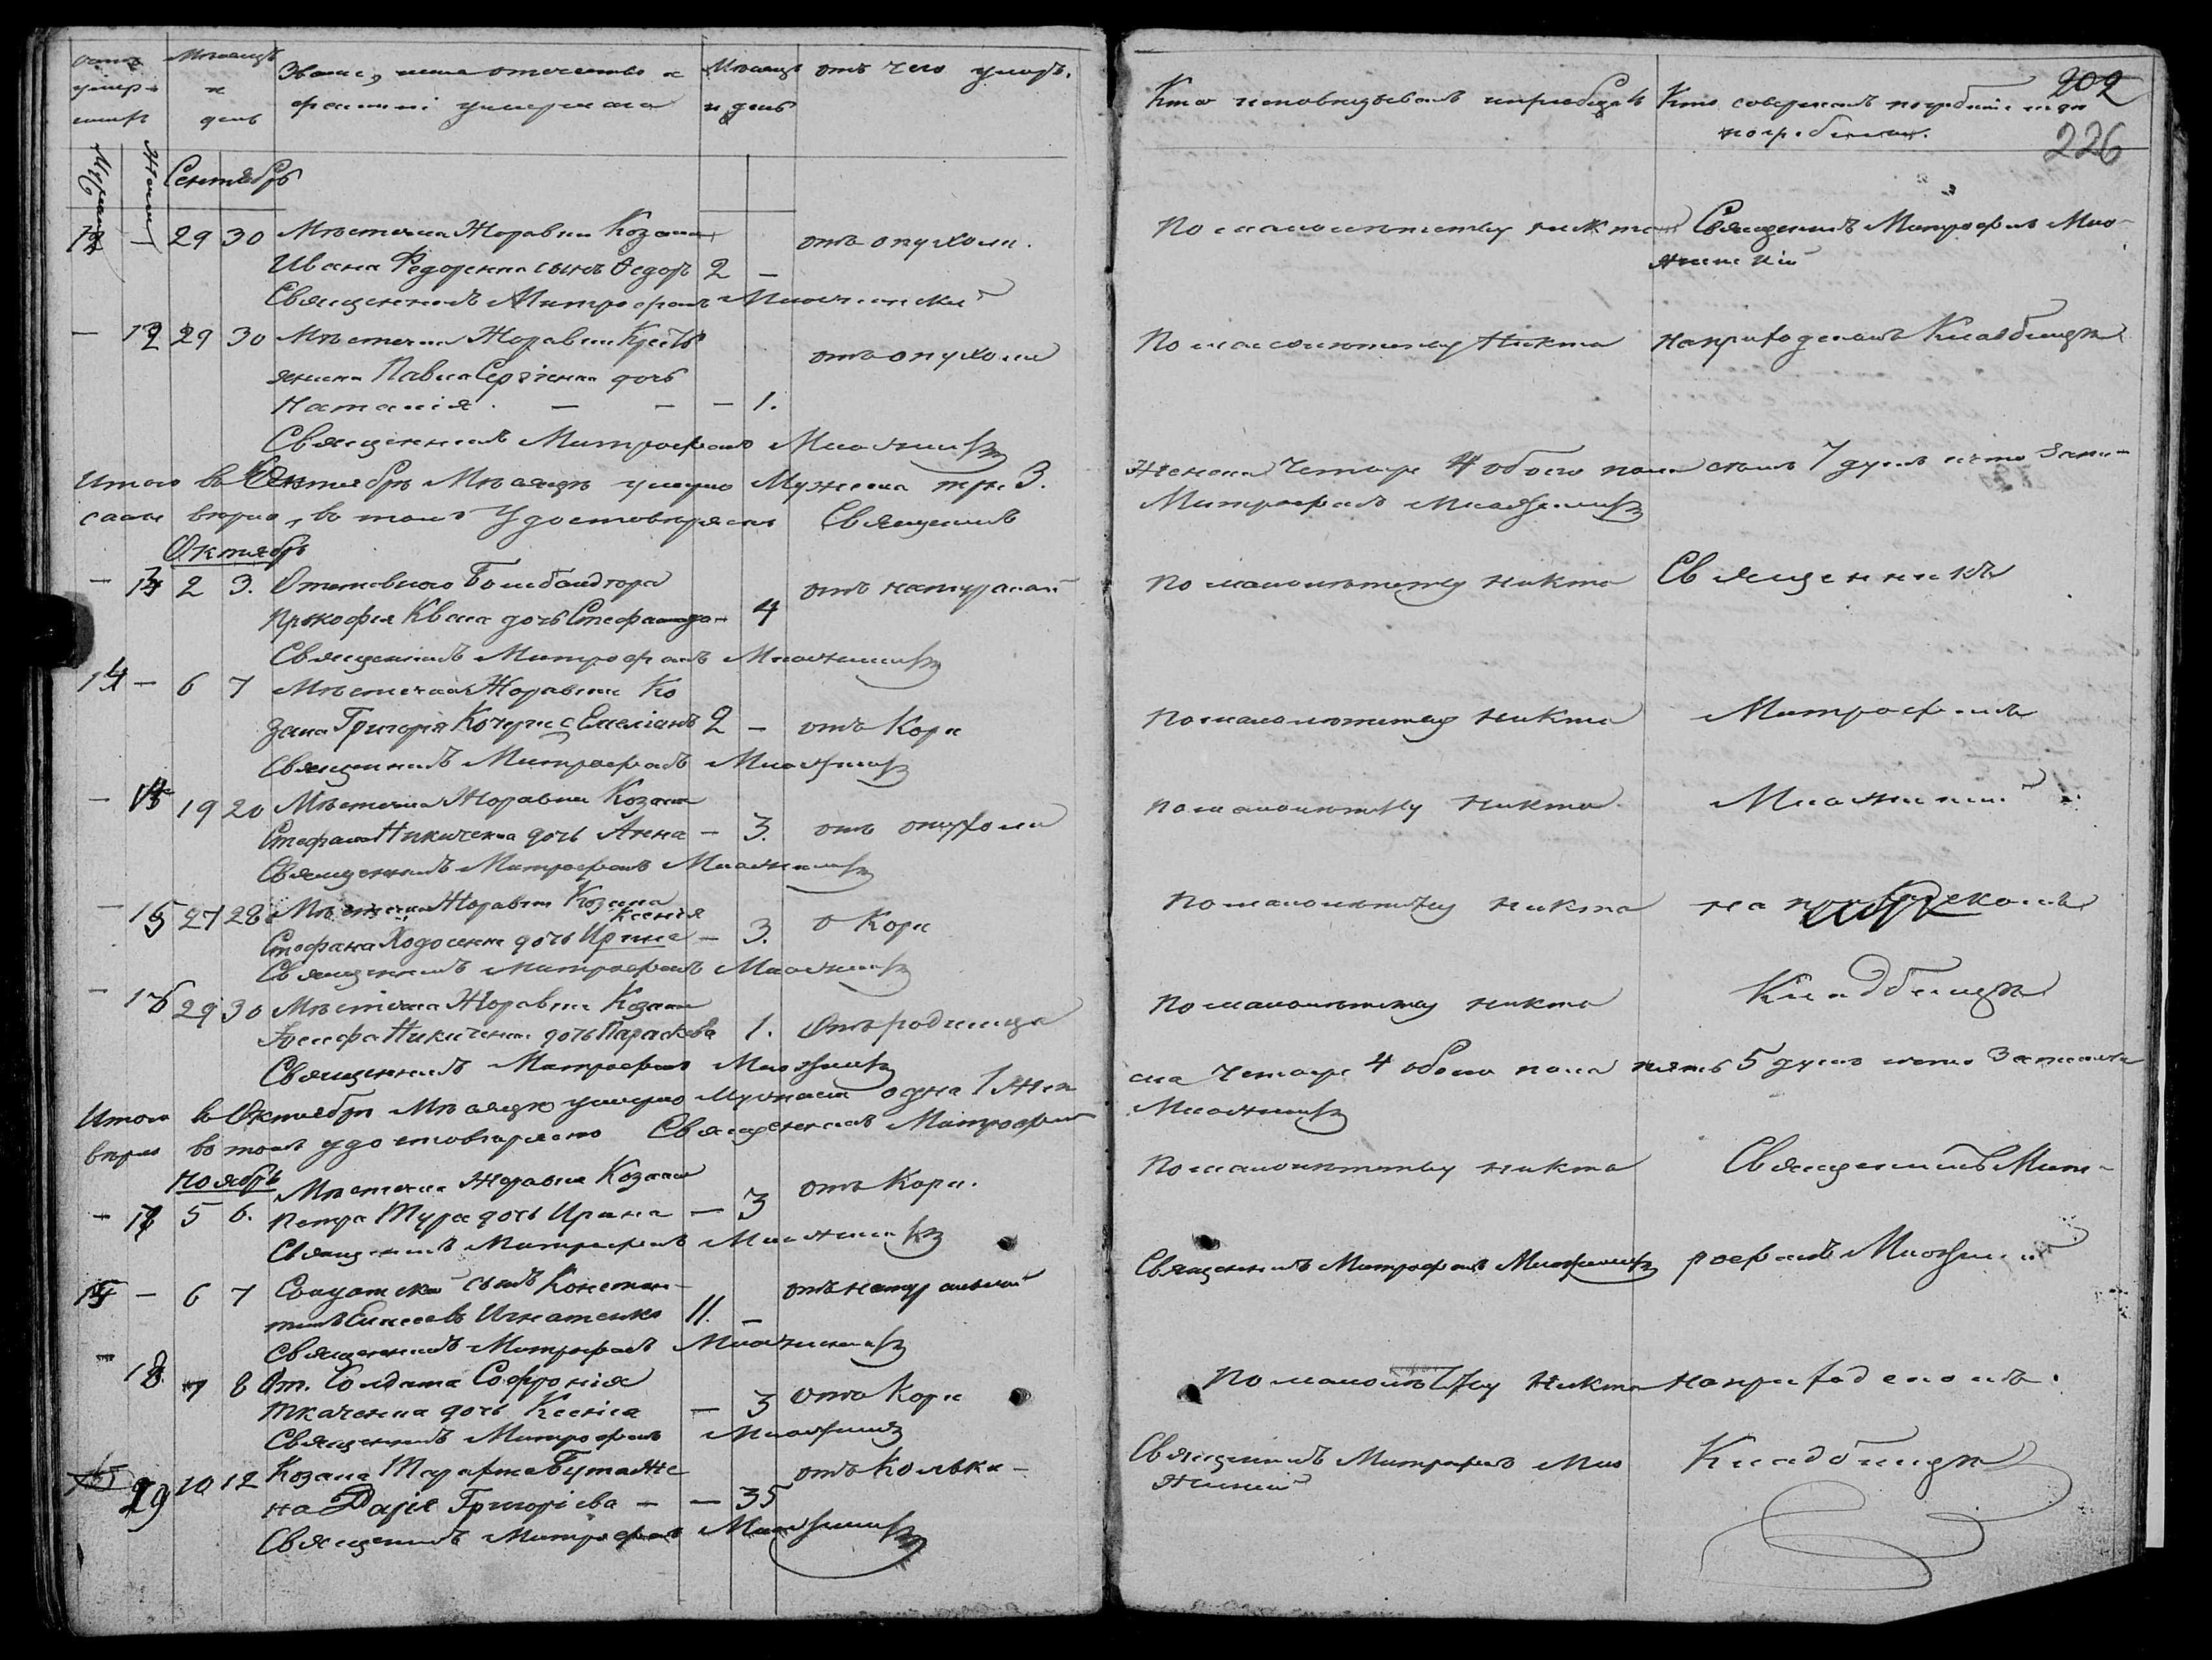 Счетъ умер-шихъ
Мѣсяцъ и день
Званіе, имя отечество и фамилія умершаго
Мѣсяцъ и день
отъ чего умеръ.
Кто исповѣдывалъ и пріобщалъ
Кто совершалъ погребеніе и гдѣ погребены.
202
226
Сентябрь
12 — 29 30 Мѣстечка Жоравки Козака отъ опухоли.
Ивана Федоренка сынъ Ѳедоръ 2 —
По малолѣтству никто Священникъ Митрофанъ
Священникъ Митрофанъ
— 12 29 30 Мѣстечка Жоравки Крестъ
янина Павла Сергіенка дочь отъ опухоли
Наталія. — — — 1.
По малолѣтству никто На приходскомъ Кладбищѣ
Священникъ Митрофанъ
Итого въ Сентябрѣ Мѣсяцѣ умерло Мужеска три 3. Женска Четыре 4 обоего пола семь 7 душъ что запи-
саны вѣрно, въ томъ удостовѣряемъ Священникъ Митрофанъ
Октябрь
— 13 2 3. Отставного Бомбандира отъ натуральной
Прокофія Кваши дочь Стефанида — 4
По малолѣтству никто Священникъ
Священникъ Митрофанъ
14 — 6 7 Мѣстечка Жоравки Ко
зака Григорія Кочерги с Емеліанъ 2 — отъ Кори
По малолѣтству никто Митрофанъ
Священникъ Митрофанъ
— 14 19 20 Мѣстечка Жоравки Козака
Стефана Никиченка дочь Анна — 3. отъ опухоли
По малолѣтству никто
Священникъ Митрофанъ
— 15 27 28 Мѣстечка Жоравки Козака
Ксенія
Стефана Ходосенка дочь Ирина — 3. о Кори
По малолѣтству никто на приходскомъ
Священникъ Митрофанъ
— 16 29 30 Мѣстечка Жоравки Козака
Іосифа Никиченка дочь Параскева 1. Отъ родимца
По малолѣтству никто Кладбищѣ
Священникъ Митрофанъ
Итого въ Октябрѣ Мѣсяцѣ умерло мужеска одна 1 Жен
ска Четыре 4 обоего пола пять 5 душъ что Записаны
вѣрно въ томъ удостовѣряемъ Священникъ Митрофанъ
Ноябрь
Мѣстечка Жоравки Козака отъ Кори.
— 17 5 6. Петра Тура дочь Ирина — 3
По малолѣтству никто Священникъ Мит-
Священникъ Митрофанъ
15 — 6 7 Солдатскій сынъ Констан- отъ натуральной
тинъ Елисеевъ Игнатенко 11. —
Священникъ Митрофанъ рофанъ
Священникъ Митрофанъ
— 18 7 8 От. Солдата Софронія
Ткаченка дочь Ксенія — 3 отъ Кори
По малолѣтству никто На приходскомъ
Священникъ Митрофанъ
19 10 12 Козака Тараса жена отъ Колька —
Дарія Григоріева — — 35
Священникъ Митрофанъ Кладбищѣ
Священникъ Митрофанъ